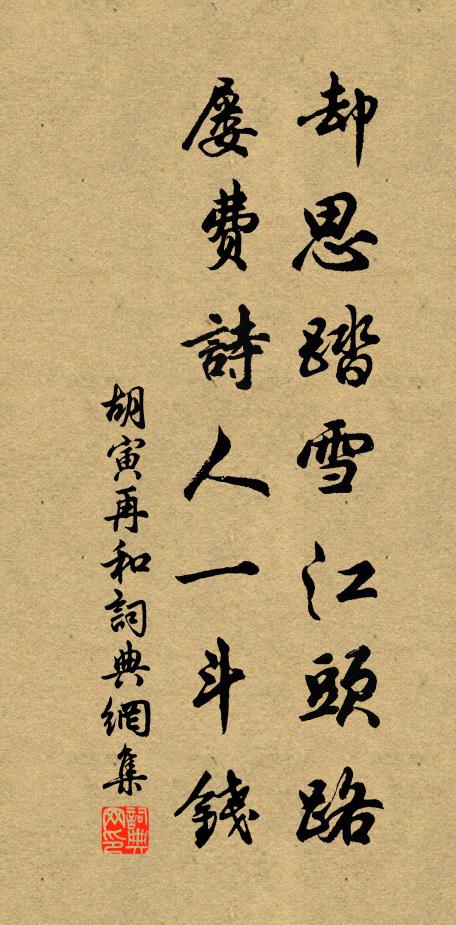 却思踏雪江頭路
屡費詩人一斗錢
胡寅再和詞典網集
詞典网印